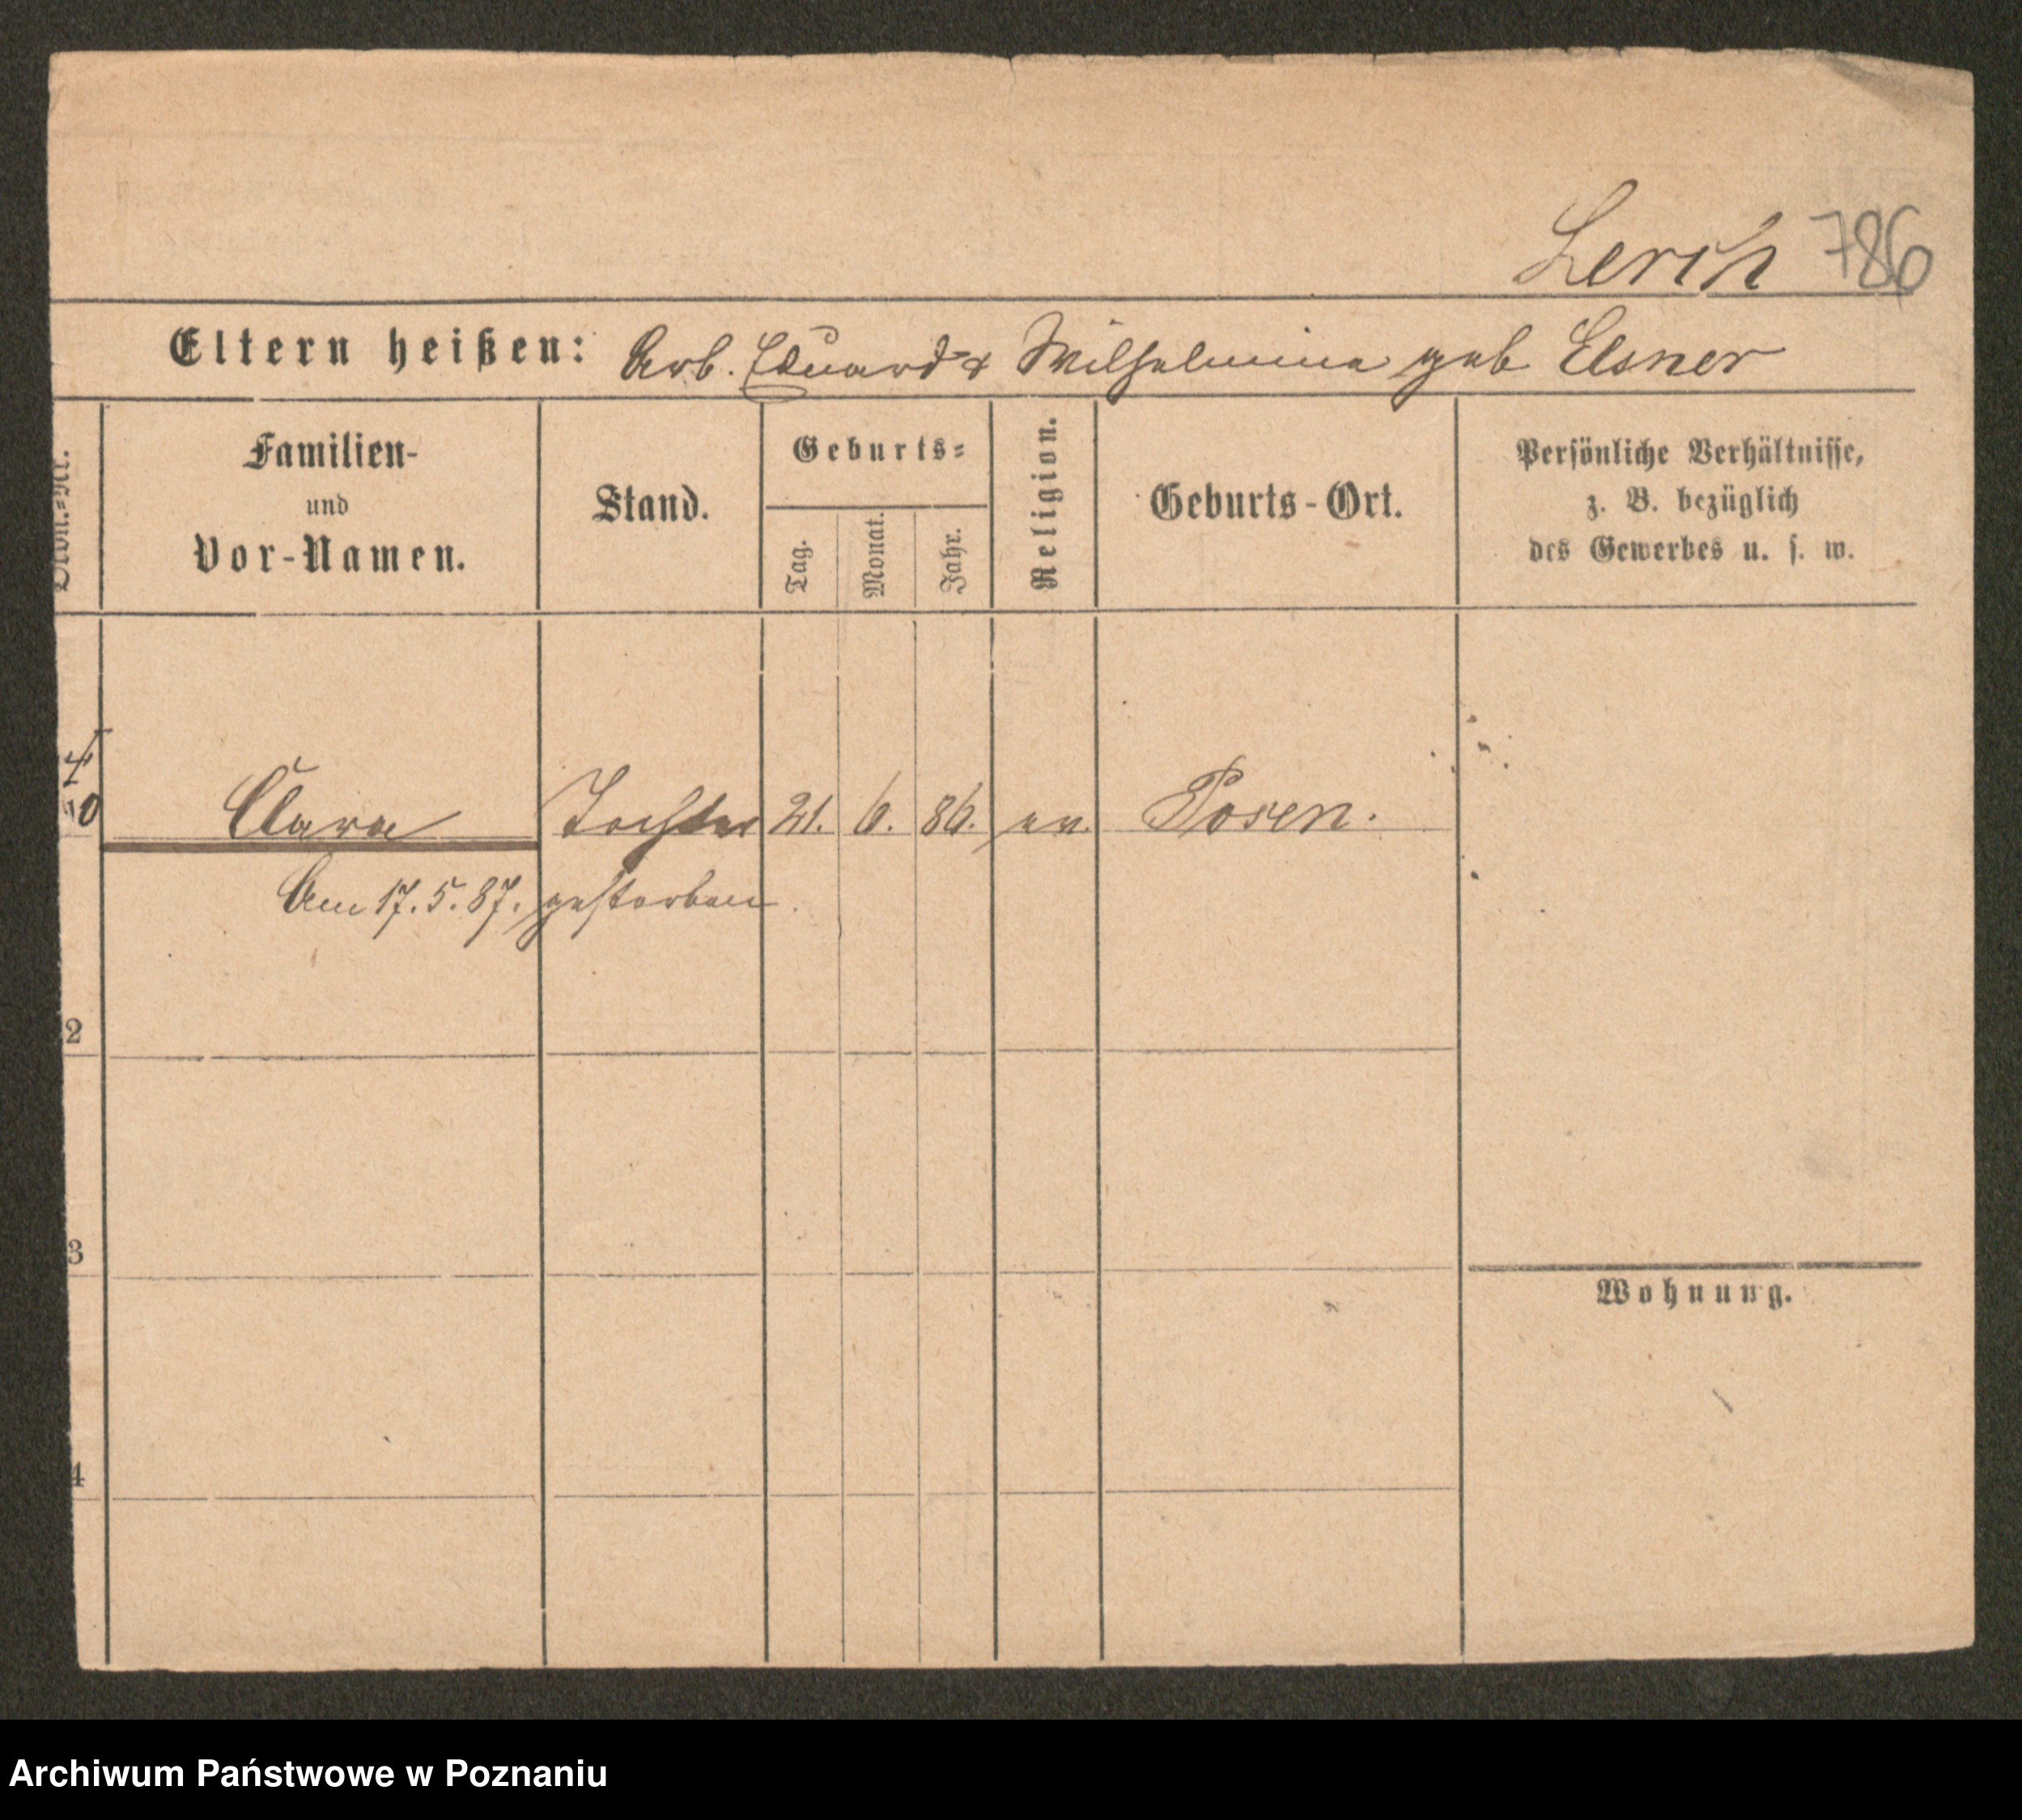 Lerch 786
Eltern heißen: Arb. Eduard & Wilhelmine geb Elsner
Ordn.-Nr.
Familien-
und
Vor-Namen.
Stand.
Geburts-
Tag.
Monat.
Jahr.
Religion.
Geburts-Ort.
Persönliche Verhältnisse,
z. B. bezüglich
des Gewerbes u. s. w.
Clara Tochter 21. 6. 86. ev. Posen.
Am 17.5.87. gestorben.
2
3
Wohnung.
4
Archiwum Państwowe w Poznaniu